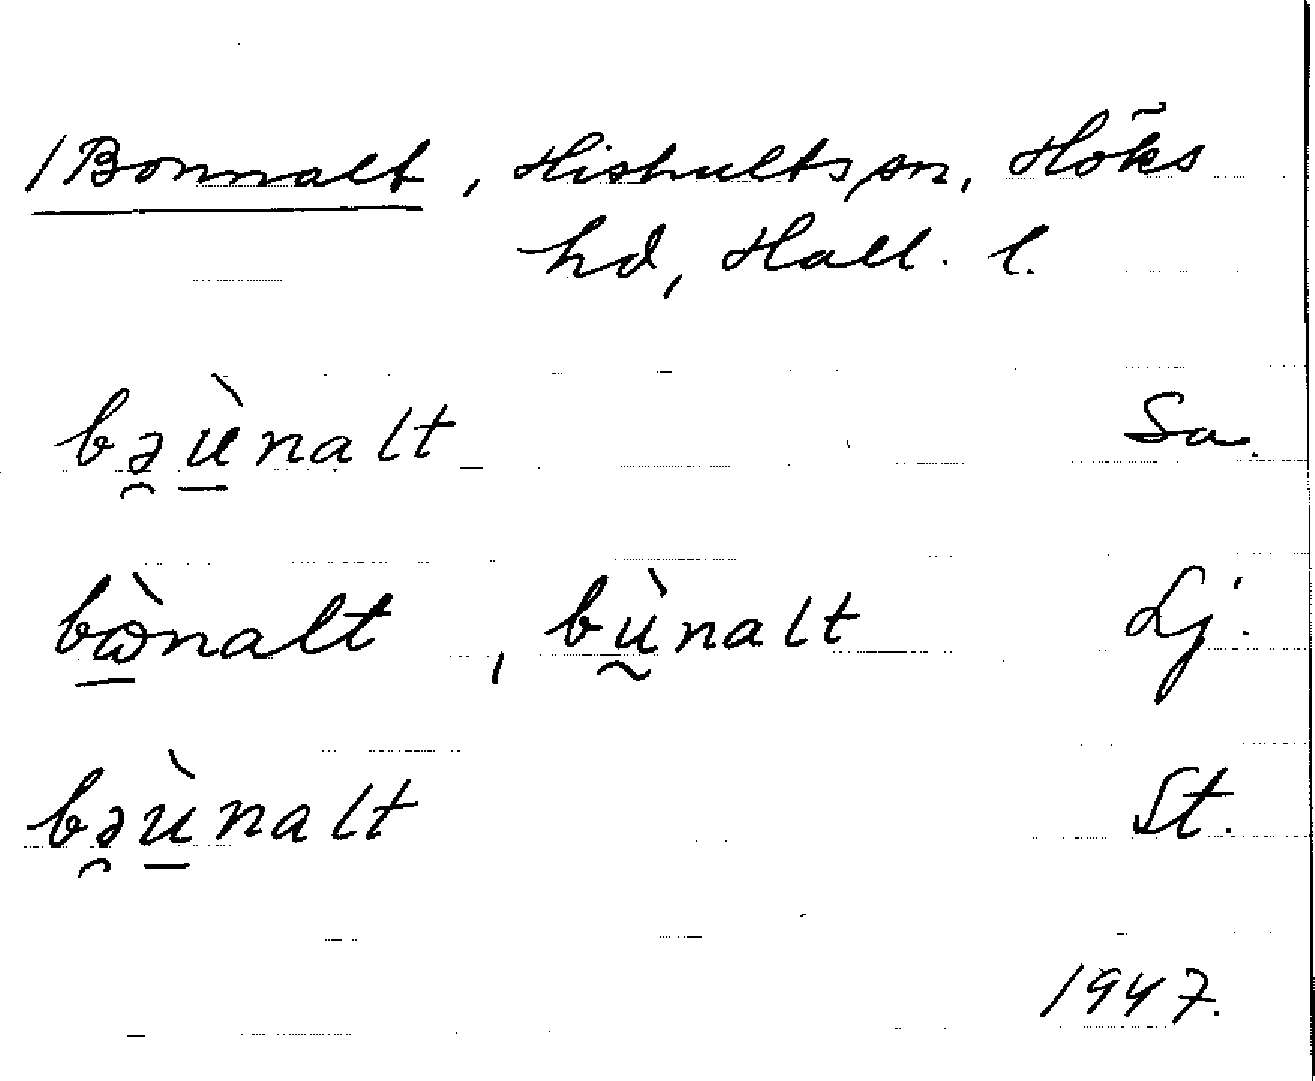 /Bonnalt, Hishults sn, Höks
hd, Hall. l.
bə̯ù̱nalt Sa.
bὼ̱nalt, bṵ̀nalt Lj.
bə̯ù̱nalt St.
1947.